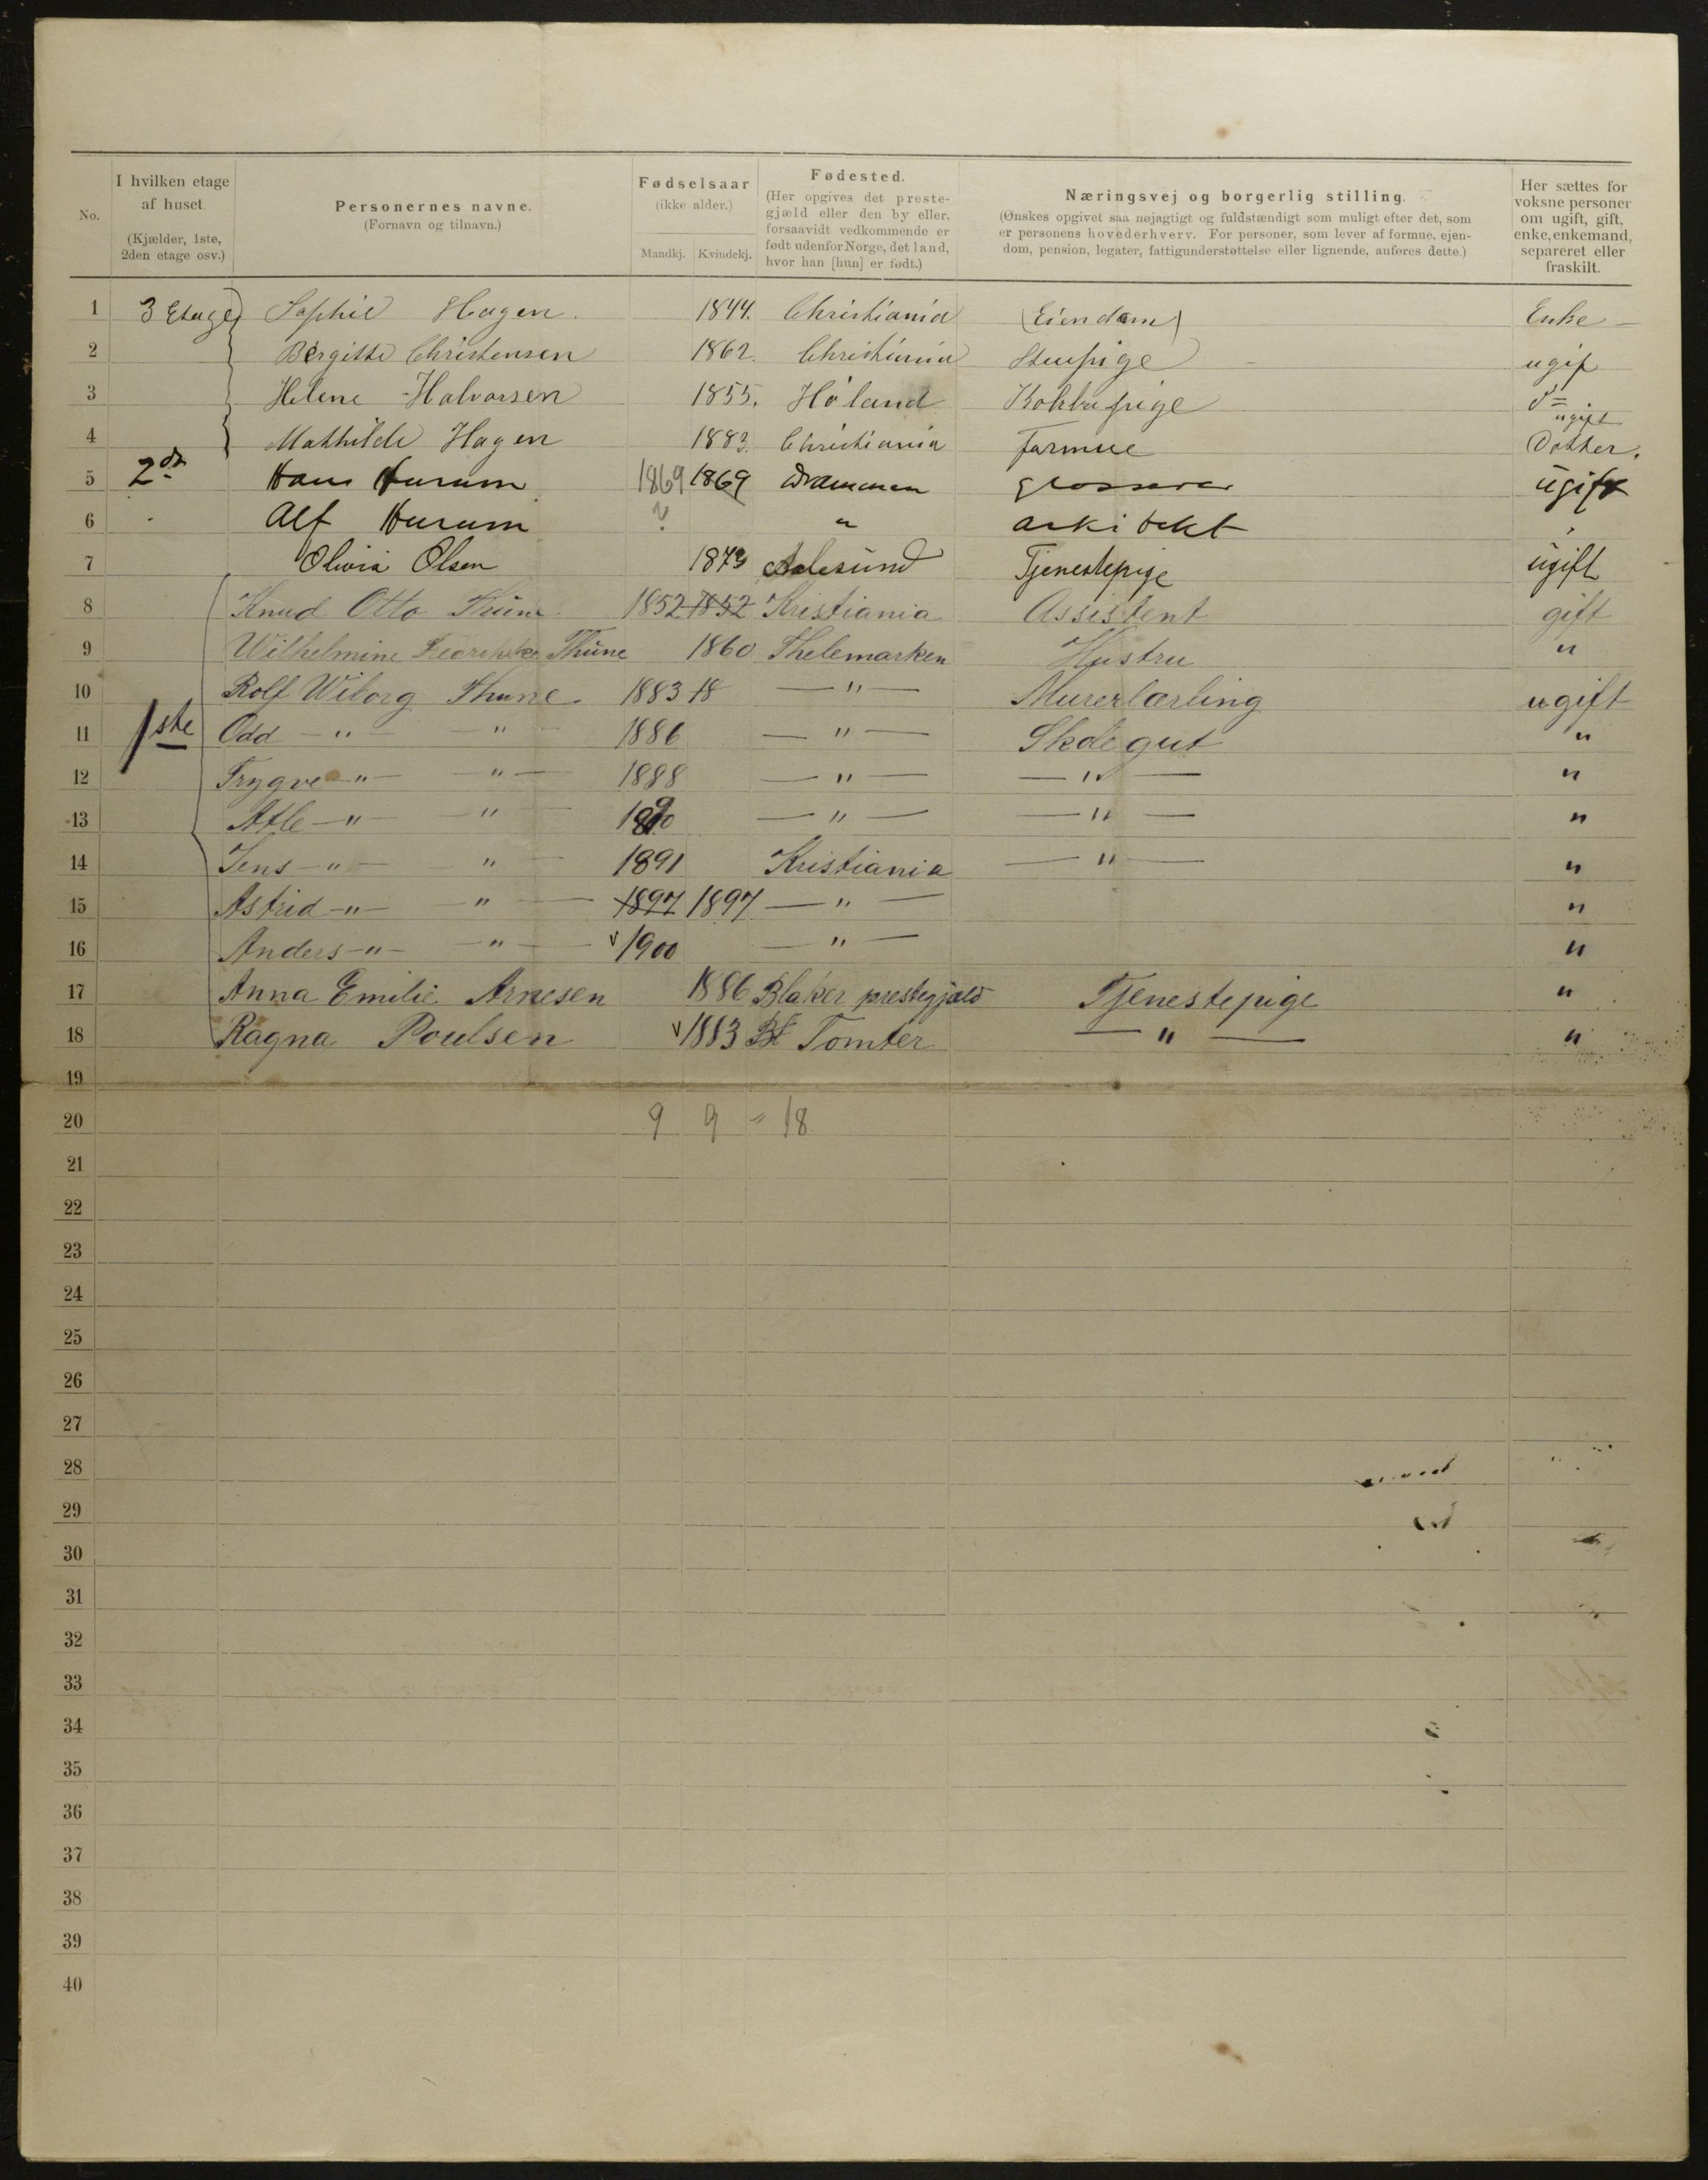 No. | I hvilken etage af huset. (Kjælder, 1ste, 2den etage osv.) | Personernes navne. (Fornavn og tilnavn.) | Fødselsaar (ikke alder.) Mandkj. Kvindekj. | Fødested. (Her opgives det prestegjæld eller den by eller, forsaavidt vedkommende er født udenfor Norge, det land, hvor han [hun] er født.) | Næringsvej og borgerlig stilling. (Ønskes opgivet saa nøjagtigt og fuldstændigt som muligt efter det, som er personens hovederhverv. For personer, som lever af formue, ejendom, pension, legater, fattigunderstøttelse eller lignende, anføres dette.) | Her sættes for voksne personer om ugift, gift, enke, enkemand, separeret eller fraskilt.
1 3 Etage Sophie Hagen. 1844. Christiania (Eiendom) Enke
2 Bergitte Christensen 1862. Christiania Stuepige ugif
3 Helene Halvorsen 1855. Høland Kokkepige d=
4 Mathilde Hagen 1883. Christiania Formue ugift Dotter.
5 2den Hans Hurum 1869 1869 Drammen grosserer ugift
6 " Alf Hurum ? " arkitekt "
7 Olivia Olsen 1873 Aalesund Tjenestepige ugift
8 Knud Otto Thune 1852 1852 Kristiania Assistent gift
9 Wilhelmine Fredrikke Thune 1860 Thelemarken Hustru "
10 Rolf Wiborg Thune 1883 18 — " — Murerlærling ugift
11 1ste Odd — " — — " — 1886 — " — Skolegut "
12 Trygve — " — — " — 1888 — " — — " — "
13 Atle — " — — " — 1890 — " — — " — "
14 Jens — " — — " — 1891 Kristiania — " — "
15 Astrid — " — — " — 1897 1897 — " — "
16 Anders — " — — " — v 1900 — " — "
17 Anna Emilie Arnesen 1886 Blaker prestegjæld Tjenestepige "
18 Ragna Poulsen v 1883 Tomter — " — "
19
20 9 9 = 18
21
22
23
24
25
26
27
28
29
30
31
32
33
34
35
36
37
38
39
40